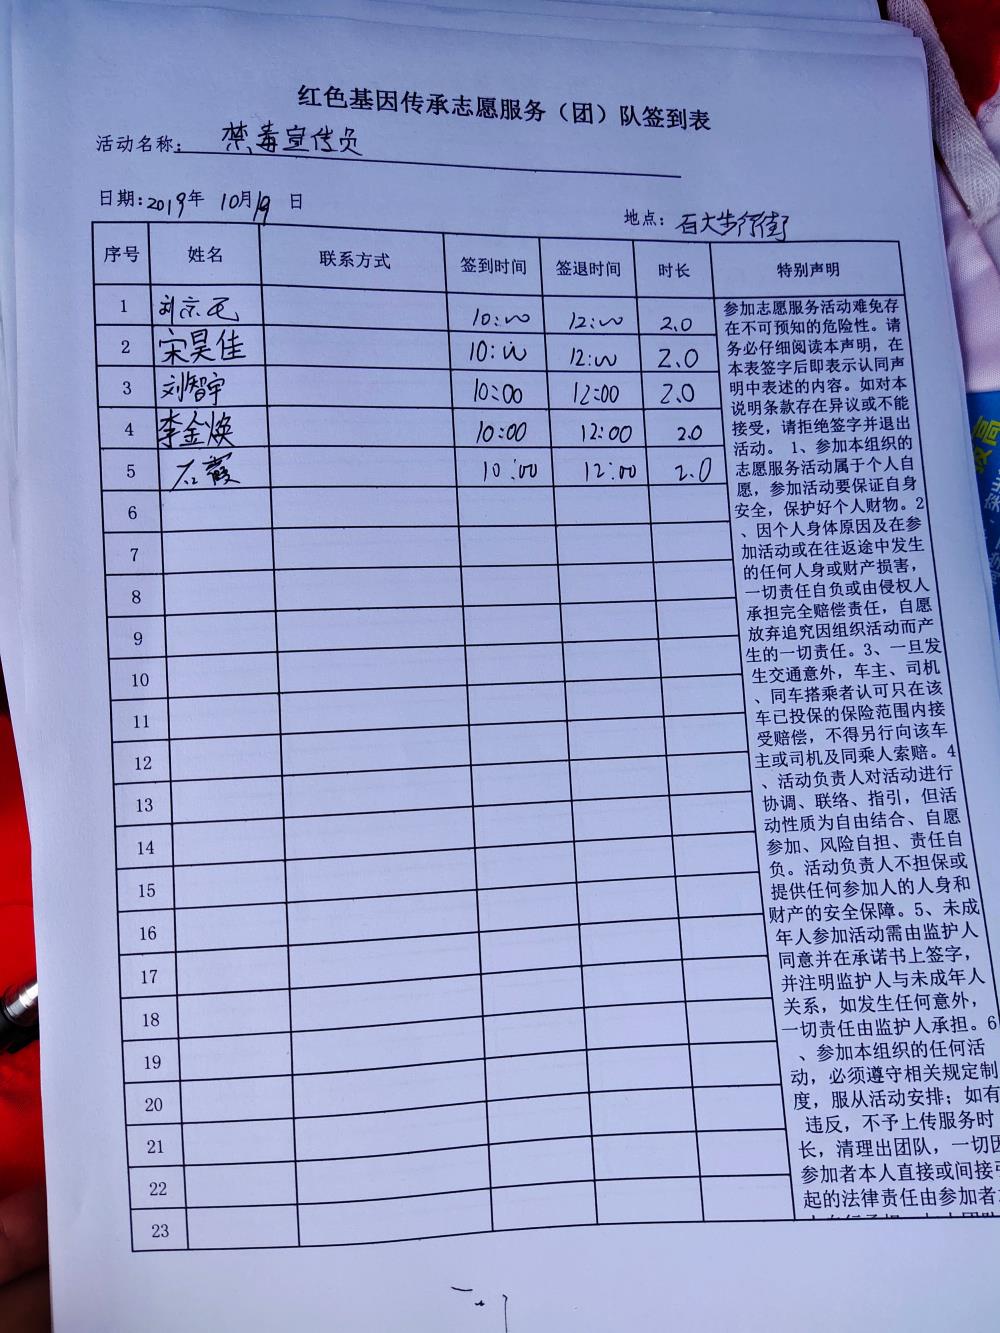 红色基因传承志愿服务（团）队签到表
活动名称：禁毒宣传员
日期：2019年 10月19 日
地点：百大步行街
序号 姓名 联系方式 签到时间 签退时间 时长 特别声明
1 刘京毛 10:00 12:00 2.0
2 宋昊佳 10:00 12:00 2.0
3 刘智宇 10:00 12:00 2.0
4 李金焕 10:00 12:00 2.0
5 石霞 10:00 12:00 2.0
6
7
8
9
10
11
12
13
14
15
16
17
18
19
20
21
22
23
参加志愿服务活动难免存
在不可预知的危险性。请
务必仔细阅读本声明，在
本表签字后即表示认同声
明中表述的内容。如对本
说明条款存在异议或不能
接受，请拒绝签字并退出
活动。 1、参加本组织的
志愿服务活动属于个人自
愿，参加活动要保证自身
安全，保护好个人财物。2
、因个人身体原因及在参
加活动或在往返途中发生
的任何人身或财产损害，
一切责任自负或由侵权人
承担完全赔偿责任，自愿
放弃追究因组织活动而产
生的一切责任。3、一旦发
生交通意外，车主、司机
、同车搭乘者认可只在该
车已投保的保险范围内接
受赔偿，不得另行向该车
主或司机及同乘人索赔。4
、活动负责人对活动进行
协调、联络、指引，但活
动性质为自由结合、自愿
参加、风险自担、责任自
负。活动负责人不担保或
提供任何参加人的人身和
财产的安全保障。5、未成
年人参加活动需由监护人
同意并在承诺书上签字，
并注明监护人与未成年人
关系，如发生任何意外，
一切责任由监护人承担。6
、参加本组织的任何活
动，必须遵守相关规定制
度，服从活动安排；如有
违反，不予上传服务时
长，清理出团队，一切因
参加者本人直接或间接引
起的法律责任由参加者